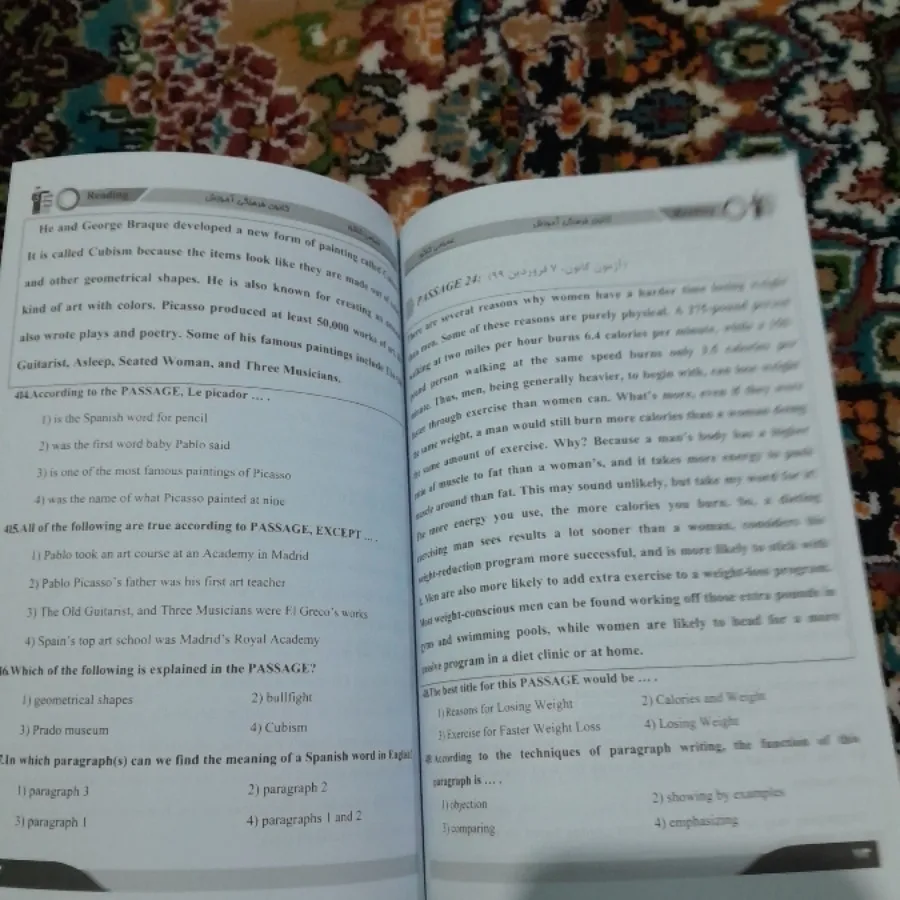 Reading
کانون فرهنگی آموزش
He and George Braque developed a new form of painting called
It is called Cubism because the items look like they are made out of
and other geometrical shapes. He is also known for creating
kind of art with colors. Picasso produced at least 50,000 works of
also wrote plays and poetry. Some of his famous paintings include
Guitarist, Asleep, Seated Woman, and Three Musicians.
414.According to the PASSAGE, Le picador ... .
1) is the Spanish word for pencil
2) was the first word baby Pablo said
3) is one of the most famous paintings of Picasso
4) was the name of what Picasso painted at nine
415.All of the following are true according to PASSAGE, EXCEPT ... .
1) Pablo took an art course at an Academy in Madrid
2) Pablo Picasso's father was his first art teacher
3) The Old Guitarist, and Three Musicians were El Greco's works
4) Spain's top art school was Madrid's Royal Academy
16.Which of the following is explained in the PASSAGE?
1) geometrical shapes 2) bullfight
3) Prado museum 4) Cubism
7.In which paragraph(s) can we find the meaning of a Spanish word in English
1) paragraph 3 2) paragraph 2
3) paragraph 1 4) paragraphs 1 and 2
کانون فرهنگی آموزش
PASSAGE 24: (آزمون کانون، ۷ فروردین ۹۹)
are several reasons why women have a harder time losing weight
than men. Some of these reasons are purely physical. A
walking at two miles per hour burns 6.4 calories per minute, while a
person walking at the same speed burns only calories per
minute. Thus, men, being generally heavier, to begin with, can lose weight
through exercise than women can. What's more, even if they were
same weight, a man would still burn more calories than a woman doing
the same amount of exercise. Why? Because a man's body has a higher
of muscle to fat than a woman's, and it takes more energy to
muscle around than fat. This may sound unlikely, but take my word for it:
the more energy you use, the more calories you burn. So, a dieting,
exercising man sees results a lot sooner than a woman, considers the
weight-reduction program more successful, and is more likely to stick with
it. Men are also more likely to add extra exercise to a weight-loss program.
Most weight-conscious men can be found working off those extra pounds in
gyms and swimming pools, while women are likely to head for a more
passive program in a diet clinic or at home.
The best title for this PASSAGE would be ... .
1) Reasons for Losing Weight 2) Calories and Weight
3) Exercise for Faster Weight Loss 4) Losing Weight
According to the techniques of paragraph writing, the function of this
paragraph is ... .
1) objection 2) showing by examples
3) comparing 4) emphasizing